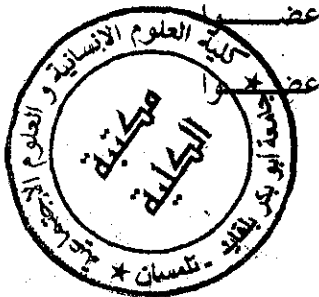 عضــــــوا
عضــــــوا
كلية العلوم الإنسانية و العلوم الاجتماعية
جامعة أبو بكر بلقايد - تلمسان
مكتبة
الكلية